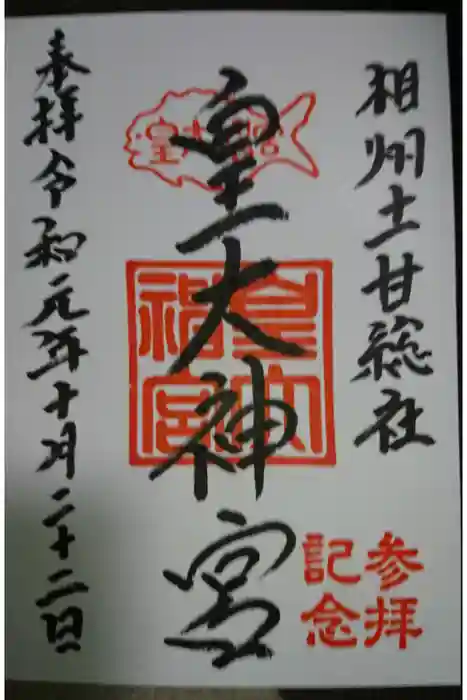 相州土甘総社
皇大神宮
皇大神宮
参拝
記念
奉拝令和元年十月二十二日